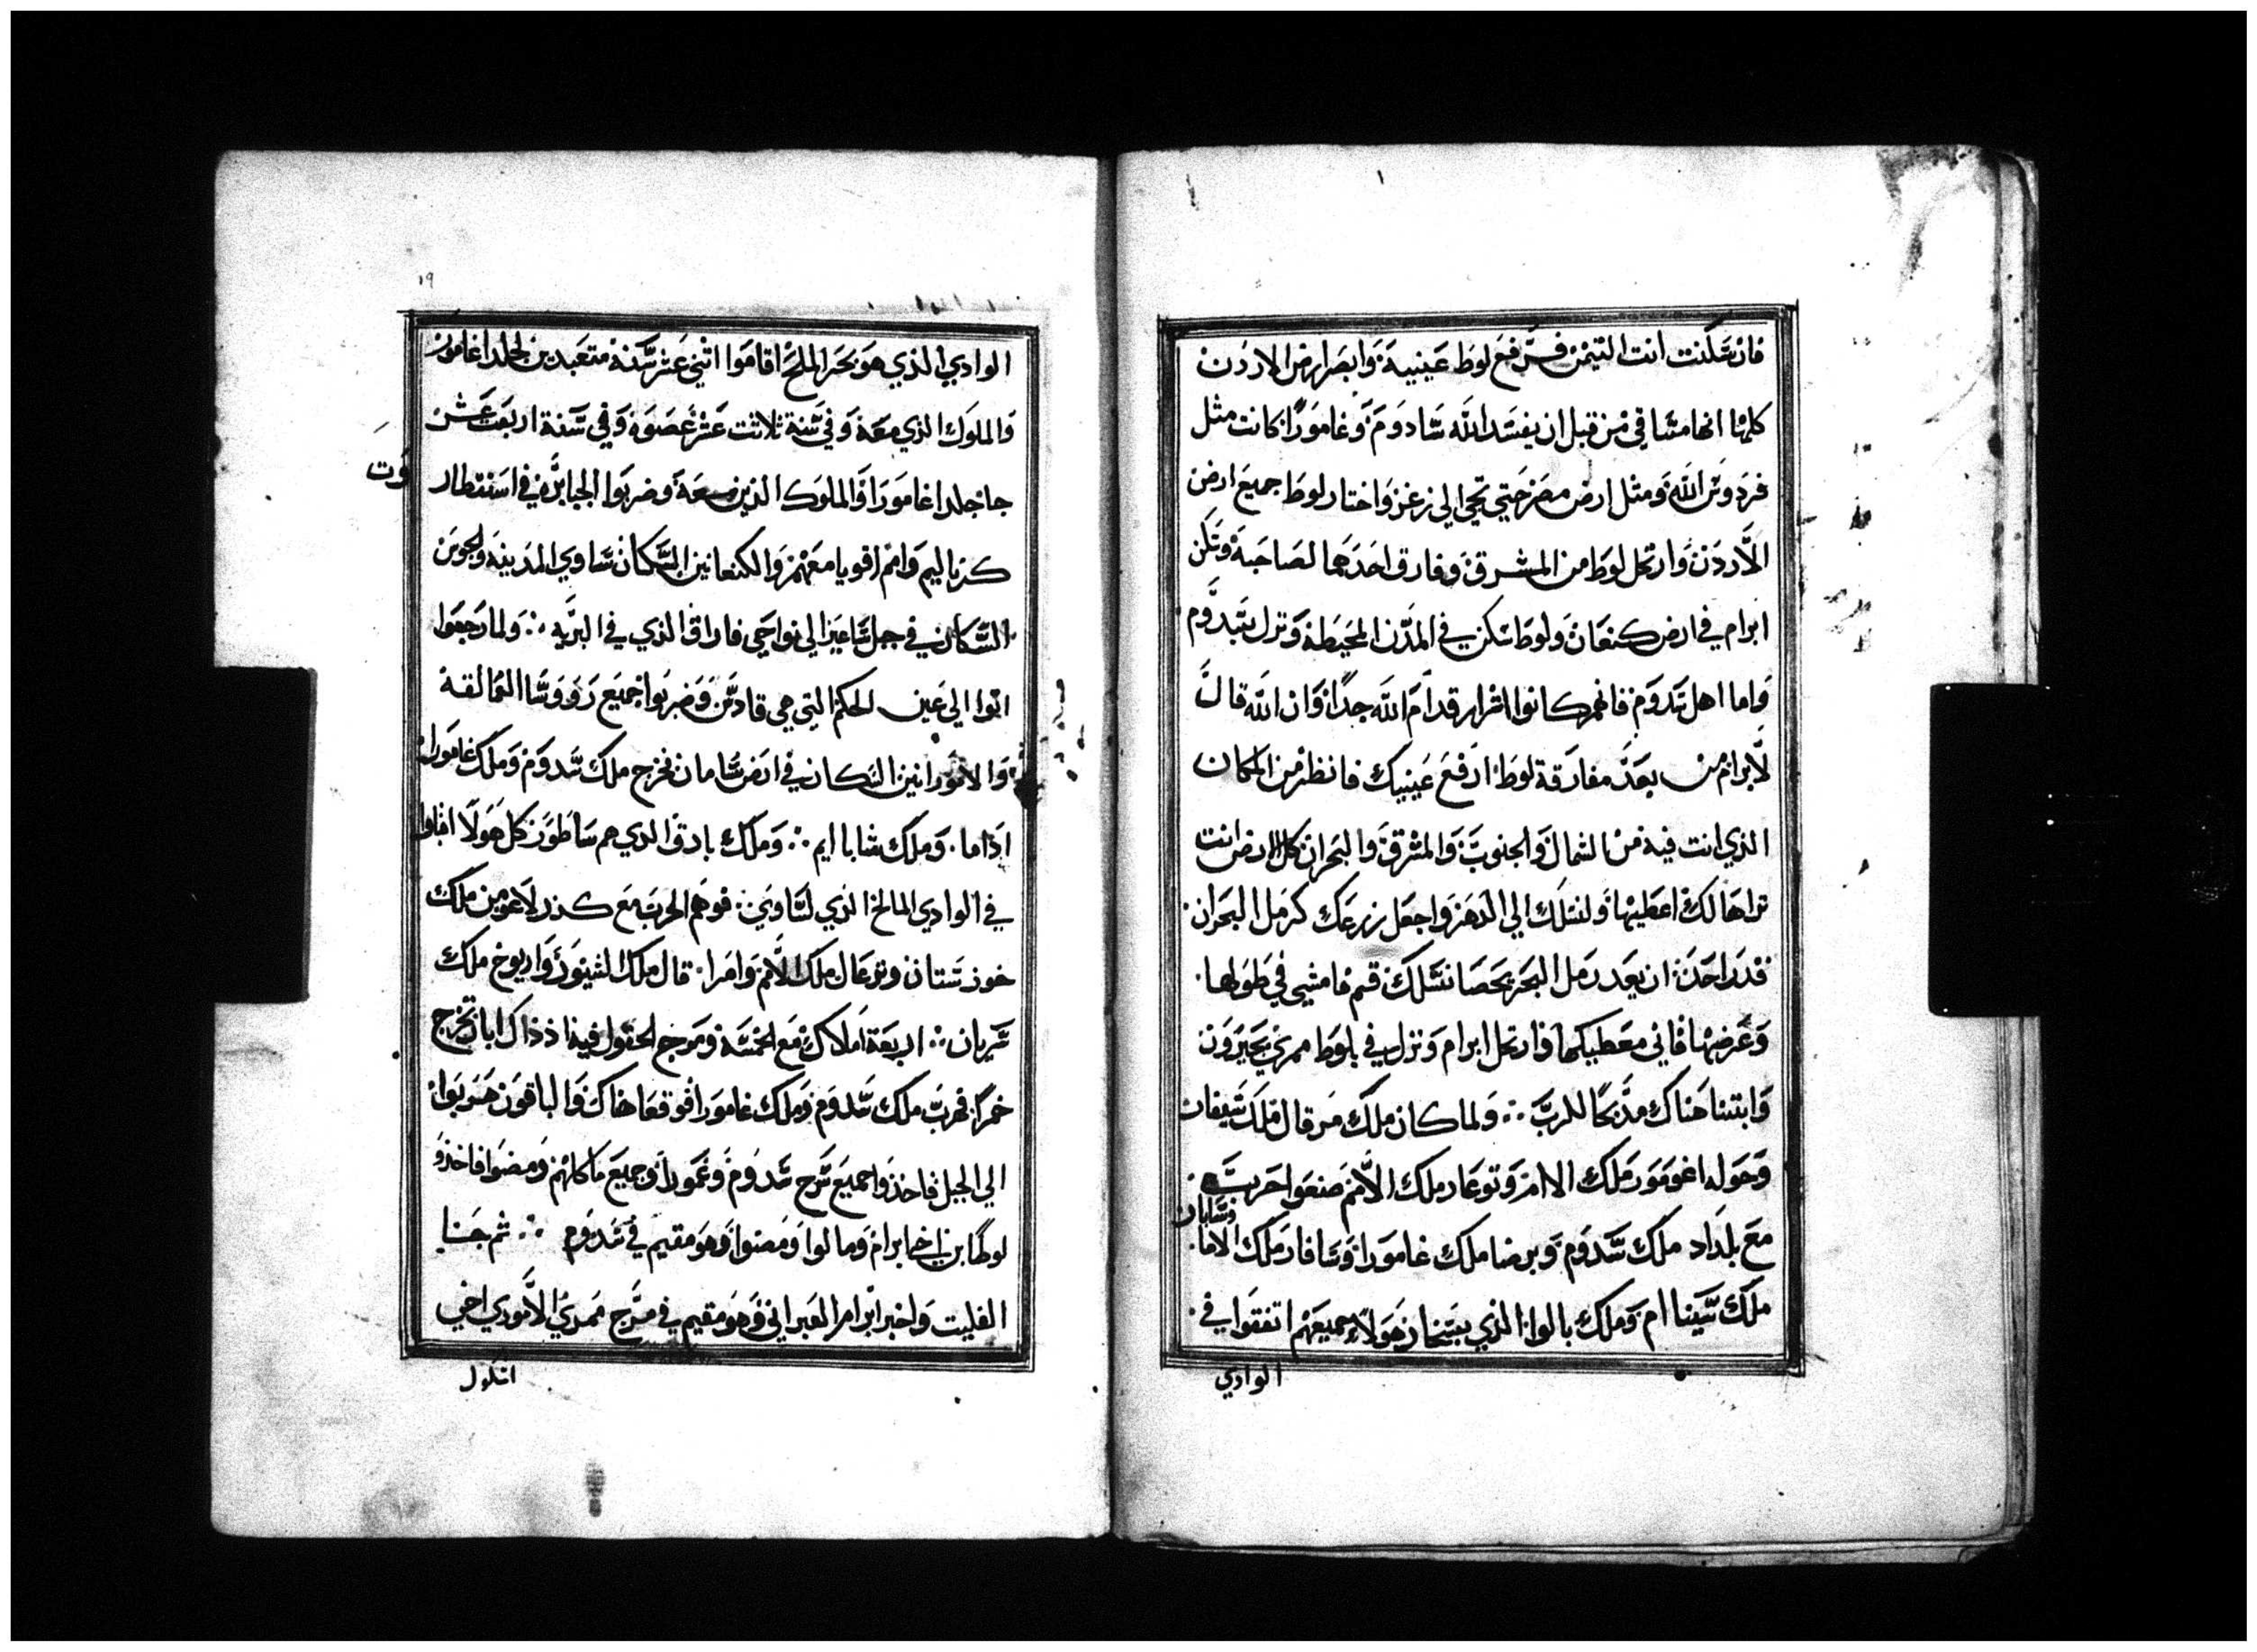 فان سَكنت انت التيمن فرفع لوط عَينيه وَابصَر ارض الاردن
كلها انها مسَاقي من قبل ان يفسَد الله سَادوَم وَغامورًا كانت مثل
فردوسَ الله وَمثل ارض مصَر حتي تجي الي زغر وَاختار لوط جميع ارض
الأردَن وَارتحل لوط من المشرق وَفارق احَدَهما لصَاحبة وَسَكن
ابرام في ارض كنعَان وَلوط سَكن في المدَن المحيَطة وَنزل بسَدَوم
وَاما اهل سَدوَم فانهم كانوا اشرار قدام الله جدًا وَان الله قال
لأبرام من بعَد مفارقة لوط ارفع عَينيك فانظر من المكان
الذي انت فيه من الشمال وَالجنوبَ وَالمشرق وَالبحران كل الارض انت
تراها لك اعطيها وَلنسَلك الي الدهر وَاجعَل زرعَك كرمَل البحَران
قدَر احَد ان يعَد رمل البحَر يحصَا نسَلك قم فامشي في طولها
وَعَرضها فاني معَطيكها فارتحل ابرام وَنزل في بلوط ممري بحَبرَون
وَابتنا هناك مذَبحًا للرب ∴ وَلما كان ملك مَرقال ملك شيفان
وَحَوله اغومَور مَلك الامم وَتوعَار ملك الأمم صنعَوا حَربَ
وشابار
مَع بلدَاد ملك سَدوَم وَبرضا ملك غامورَا وَسَافار مَلك الاما
ملَك سَيَنا ام وَملك بالوا الذي بسَخار هَولاء جميعَهم اتفقوَا في
الوادي
١٩
الوادي الذي هوَ بحَر الملح اقاموَا اثني عَشر سَنة متعَبدين لجلدا غامور
وَالملوَك الذي معَة وَفي سَنة ثلاثت عَشر عَصَوَه وَفي سَنة اربعَت عَشر
وت
جا جلدا غاموَرَا وَالملوَك الذين معَة وَضربَوا الجبابرة في اسَتقطار
كرناليم وَامم اقويا معَهم وَالكنعانين السَكان سَاوي المدَينة وَالجوسَ
السَكان في جبل سَاعَير الي نواحَي فاران الذي في البرَيه ∴ وَلما رجعَوا
اتوا الي عَين الحكم التي هي قادسَ وَضربَوا جميَع رَووَسَا العَمالقة
وَالامَورانين السَكان في ارض سَامان فخرج ملك سَدوَم وَملك غاموَرا
ادَاما وَملك شابا ايم ∴ وَملك بادق الدي هم سَاطوَر كل هولا اقبلوا
في الوادي المالح الذي لسَاوي ∴ فوهم الحربَ مَع كدر لاعَومر ملك
خوزسَتان وَتوعَال ملك الأمم وَامرا قال ملك الشنيَور وَاريوخ ملك
سَريان ∴ اربعَة املاك مَع الخمسَة وَمَرج الحقول فية اذ ذاك ابار تخرج
خمرًا فهربَ ملك سَدوَم وَملك غاموَرا فوقعَا هاك وَالباقوَن هَربَوا
الي الجبل فاخذوَا جميَع سَرح سَدوَم وَعَمورا وَجميَع ماكلهم وَمضوا فاخذوَ
لوطًا بن اخي ابرام وَمالوا وَمضوا وَهوَ مقيم في سَدوَم ∴ ثم جَا
الفليت وَاخبر ابرامر العَبراني وَهوَ مقيم في مَرج ممَري الأموري اخي
اشكول